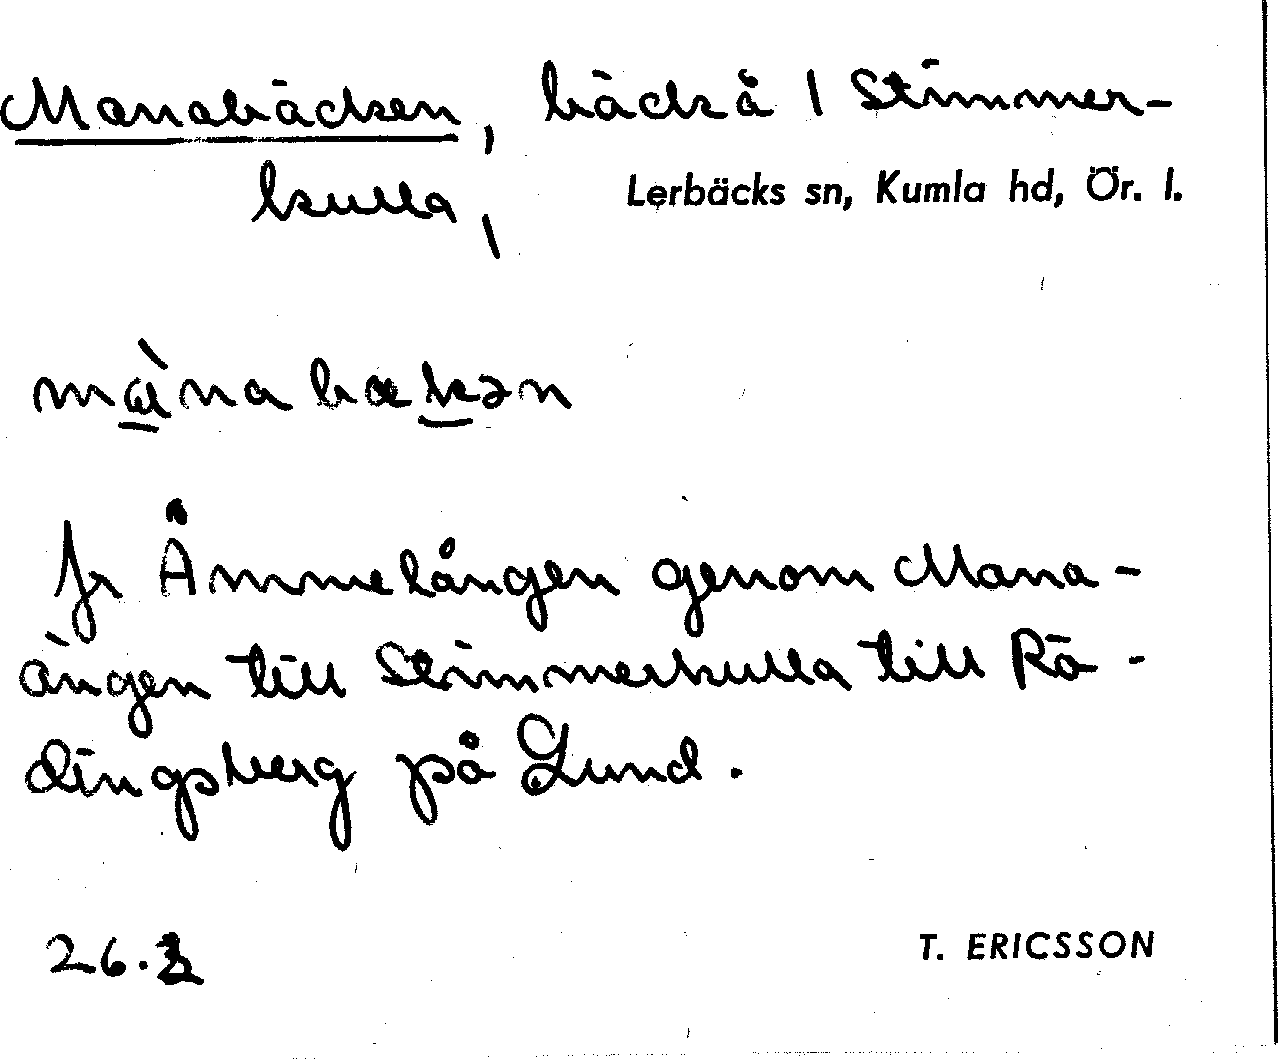 Manabäcken, bäck å 1 Stimmer-
kulla,
Lerbäcks sn, Kumla hd, Ör. l.
mànabækən
fr Åmmelången genom Mana-
ängen till Stimmerkulla till Rö-
dingsberg på Lund.
26.
T. ERICSSON